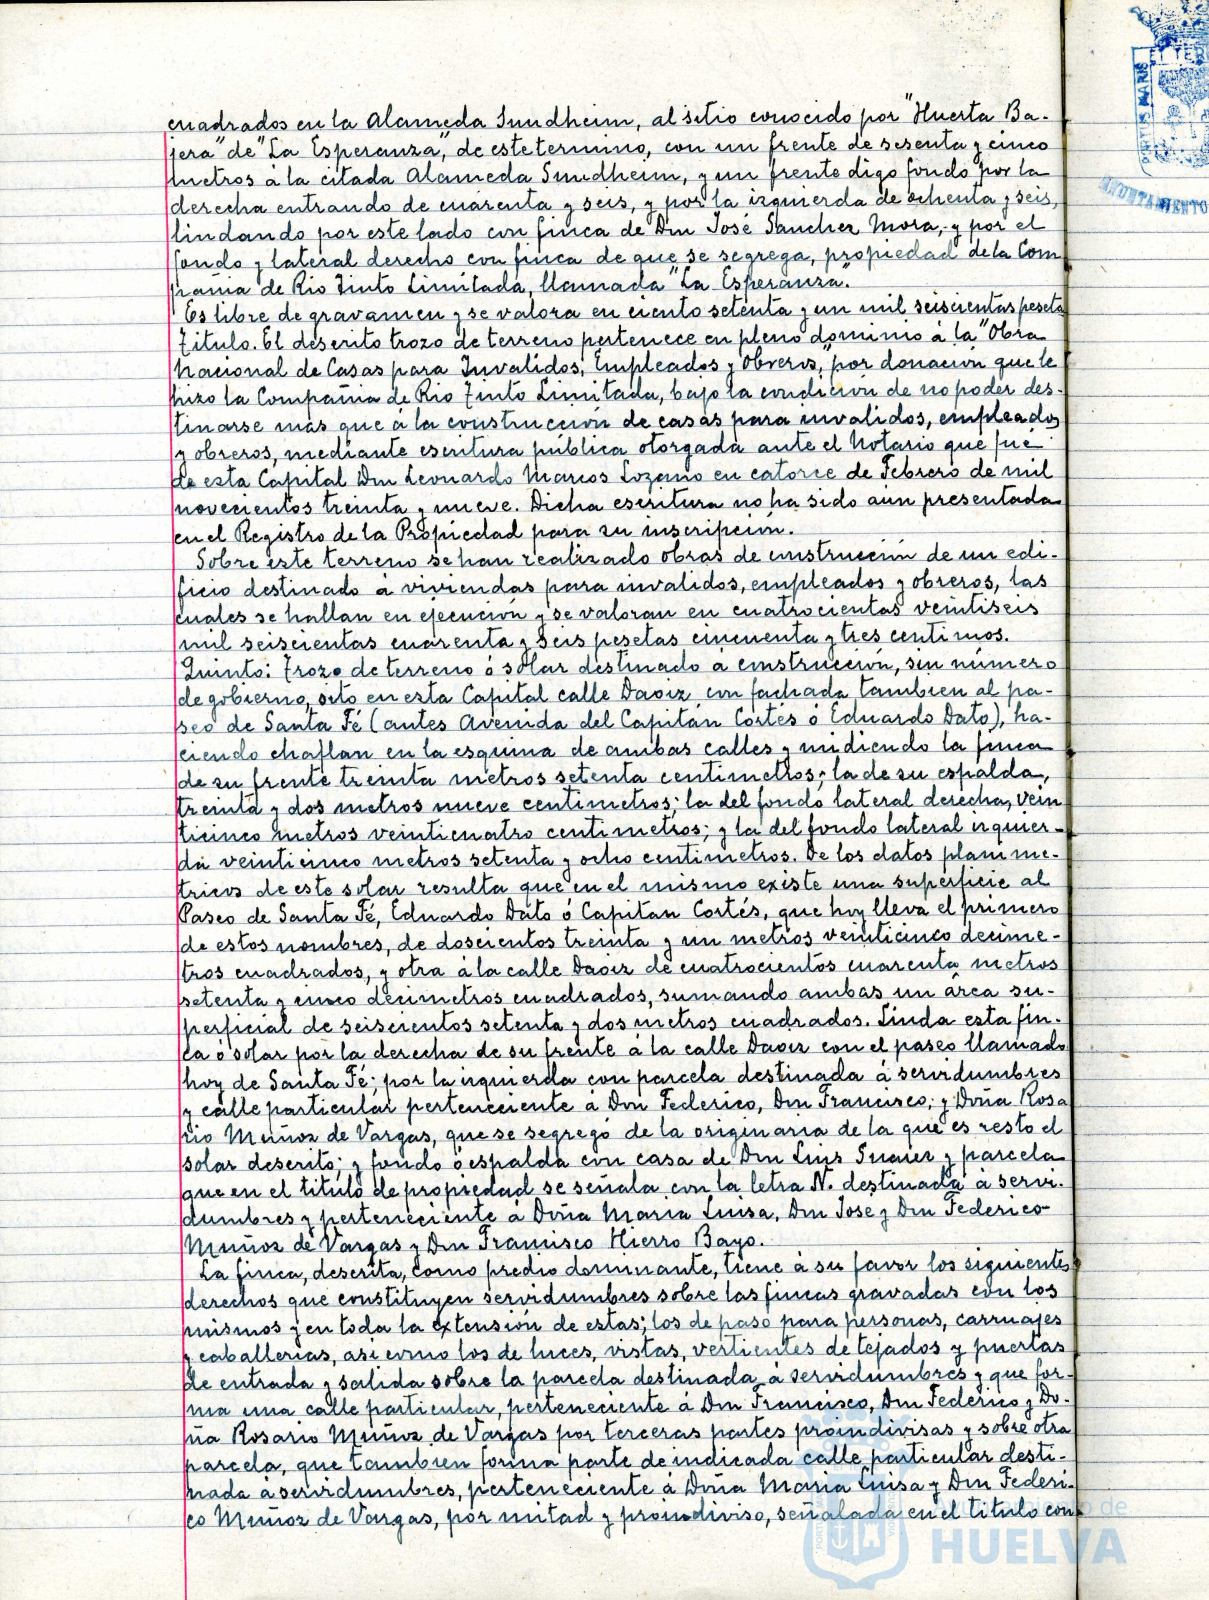 cuadrados en la Alameda Sundheim, al sitio conocido por "Huerta Ba-
jera" de "La Esperanza", de este termino, con un frente de sesenta y cinco
metros á la citada Alameda Sundheim, y un frente digo fondo por la
derecha entrando de cuarenta y seis, y por la izquierda de ochenta y seis,
lindando por este lado con finca de Don José Sanchez Mora, y por el
fondo y lateral derecho con finca de que se segrega, propiedad de la Com
pañia de Rio Tinto Limitada, llamada "La Esperanza".
Es libre de gravamen y se valora en ciento setenta y un mil seiscientas peseta
Titulo. El descrito trozo de terreno pertenece en pleno dominio á la "Obra
Nacional de Casas para Invalidos, Empleados y Obreros", por donación que le
hizo la Compañia de Rio Tinto Limitada, bajo la condición de no poder des-
tinarse más que á la construcción de casas para invalidos, empleados
y obreros, mediante escritura pública otorgada ante el Notario que fué
de esta Capital Don Leonardo Marcos Lozano en catorce de Febrero de mil
novecientos treinta y nueve. Dicha escritura no ha sido aún presentada
en el Registro de la Propiedad para su inscripción.
Sobre este terreno se han realizado obras de construcción de un edi-
ficio destinado á viviendas para invalidos, empleados y obreros, las
cuales se hallan en ejecución y se valoran en cuatrocientas veintiseis
mil seiscientas cuarenta y seis pesetas cincuenta y tres centimos.
Quinto: Trozo de terreno ó solar destinado á construcción, sin número
de gobierno, sito en esta Capital calle Daoiz con fachada tambien al pa-
seo de Santa Fé (antes Avenida del Capitán Cortés ó Eduardo Dato), ha-
ciendo chaflan en la esquina de ambas calles y midiendo la finca
de su frente treinta metros setenta centimetros; la de su espalda,
treinta y dos metros nueve centimetros; la del fondo lateral derecha, vein
ticinco metros veinticuatro centimetros; y la del fondo lateral izquier-
da veinticinco metros setenta y ocho centimetros. De los datos planime-
tricos de este solar resulta que en el mismo existe una superficie al
Paseo de Santa Fé, Eduardo Dato ó Capitan Cortés, que hoy lleva el primero
de estos nombres, de doscientos treinta y un metros veinticinco decime-
tros cuadrados, y otra á la calle Daoiz de cuatrocientos cuarenta metros
setenta y cinco decimetros cuadrados, sumando ambas un área su-
perficial de seiscientos setenta y dos metros cuadrados. Linda esta fin-
ca ó solar por la derecha de su frente á la calle Daoiz con el paseo llamado
hoy de Santa Fé; por la izquierda con parcela destinada á servidumbres
y calle particular perteneciente á Don Federico, Don Francisco; y Doña Rosa
rio Muñoz de Vargas, que se segregó de la originaria de la que es resto el
solar descrito; y fondo ó espalda con casa de Don Luis Suarez y parcela
que en el titulo de propiedad se señala con la letra N. destinada á servi-
dumbres y perteneciente á Doña Maria Luisa, Don Jose y Don Federico
Muñoz de Vargas y Don Francisco Hierro Bayo.
La finca, descrita, como predio dominante, tiene á su favor los siguientes
derechos que constituyen servidumbres sobre las fincas gravadas con los
mismos y en toda la extensión de estas; los de paso para personas, carruajes
y caballerias, asi como los de luces, vistas, vertientes de tejados y puertas
de entrada y salida sobre la parcela destinada á servidumbres y que for-
ma una calle particular, perteneciente á Don Francisco, Don Federico y Do-
ña Rosario Muñoz de Vargas por terceras partes proindivisas y sobre otra
parcela, que tambien forma parte de indicada calle particular desti-
nada á servidumbres, perteneciente á Doña Maria Luisa y Don Federi-
co Muñoz de Vargas, por mitad y proindiviso, señalada en el titulo con
PORTUS MARIS
ET TER
AYUNTAMIENTO
Ayuntamiento de
HUELVA